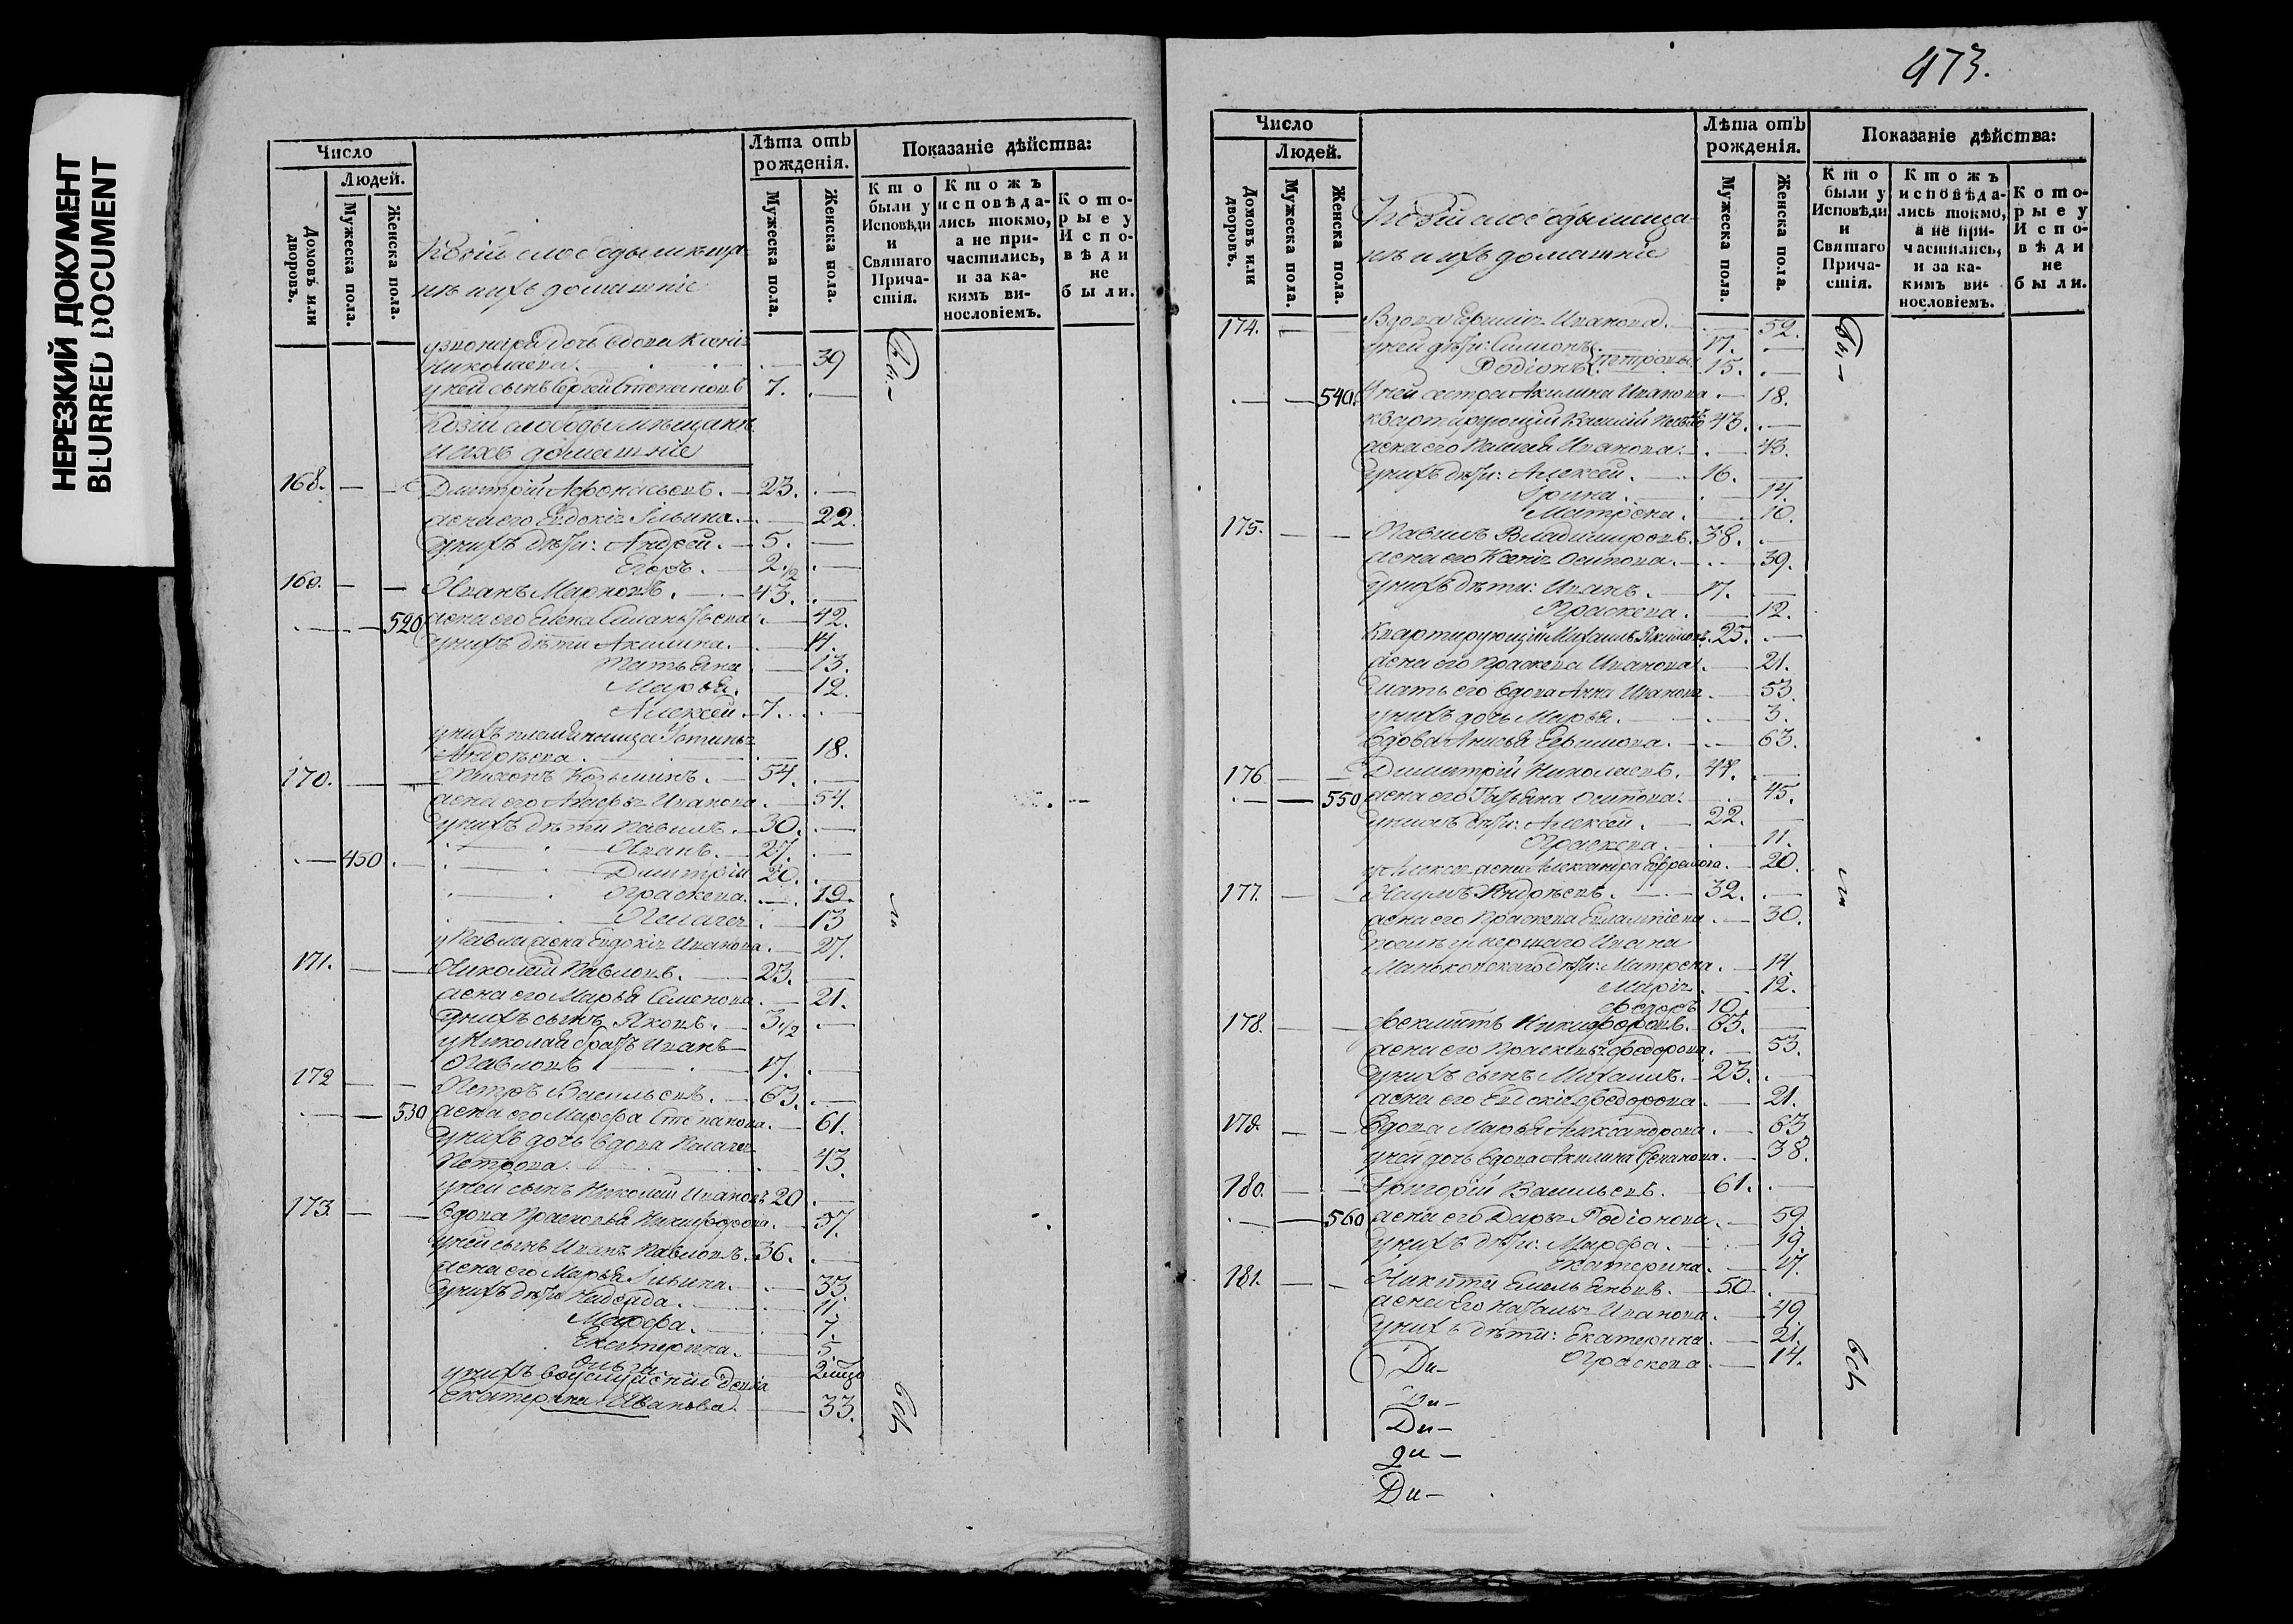 НЕРЕЗКИЙ ДОКУМЕНТ
BLURRED DOCUMENT
Число
Людей.
Домовъ или дворовъ.
Мужеска пола.
Женска пола.
Лѣта отъ рожденія.
Мужеска пола.
Женска пола.
Показаніе дѣйства:
Кто были у Исповѣди и Святаго Причастія.
Ктожъ исповѣдались токмо, а не причастились, и за какимъ винословіемъ.
Которые у Исповѣди не были.
Козій слободы мѣща-
не и ихъ домашніе
дочь вдова Ксенія
Николаева. 39
у ней сынъ Сергей Степановъ 7.
Козій слободы мѣщане
и ихъ домашніе
168. Дмитрій Афонасьевъ. 23.
жена его Евдокія Ильина. 22.
у нихъ дѣти: Андрей. 5.
Егоръ. 2 1/2
169. Иванъ Марковъ. 43.
520 жена его Елена 42.
у нихъ дѣти Акилина.
Татьяна 13.
Марья. 12.
Алексей. 7.
у нихъ племянница Устинья
Андрѣева. 18.
170. Козьминъ. 54.
жена его Иванова. 54.
у нихъ дѣти Павилъ. 30.
Иванъ. 27.
450 Дмитрій 20.
Праскева. 19.
Пелагея 13
у Павла жена Евдокія Иванова. 27.
171. Николай Павловъ. 23.
жена его Марья Семенова. 21.
у нихъ сынъ Яковъ. 3 1/2
у Николая братъ Иванъ
Павловъ 17.
172 Петръ Васильевъ. 63.
530 жена его Марфа Степанова. 61.
у нихъ дочь вдова Пелагея
Петрова. 43.
у ней сынъ Николай Ивановъ 20
173. Вдова Прасковья Никифорова. 57.
у ней сынъ Иванъ Павловъ. 36.
жена его Марья Ильина. 33.
у нихъ дѣти Надежда. 11.
Марфа. 7.
Екатерина. 5.
Ольга.
у нихъ
Екатерина Иванова. 33.
Бы-
ли
всѣ
473.
Число
Людей.
Домовъ или дворовъ.
Мужеска пола.
Женска пола.
Лѣта отъ рожденія.
Мужеска пола.
Женска пола.
Показаніе дѣйства:
Кто были у Исповѣди и Святаго Причастія.
Ктожъ исповѣдались токмо, а не причастились, и за какимъ винословіемъ.
Которые у Исповѣди не были.
Козій слободы мѣща-
не и ихъ домашніе
174. Вдова Иванова. 52.
у ней дѣти: Симіонъ 17.
Родіонъ Петровы 15.
540. у ней сестра Акилина Иванова 18.
квартирующій 43.
жена его Иванова. 43.
у нихъ дѣти: Алексей. 16.
Ирина. 14.
Матрена. 10.
175. Павилъ Владимировъ. 38.
жена его Ксенія Осипова. 39.
у нихъ дѣти: Иванъ. 17.
Праскева. 12.
Квартирующій Михаилъ 25.
жена его Праскева Иванова 21.
мать его вдова Анна Иванова 53.
у нихъ дочь Марья. 3.
Вдова Анисья 63.
176 Димитрій Николаевъ. 47.
550 жена его Татьяна Осипова. 45.
у нихъ дѣти: Алексей. 22.
Праскева. 11.
у Алексея жена Александра Ефремова. 20.
177. Наумъ Андрѣевъ. 32.
жена его Праскева Евлампіева. 30.
послѣ умершаго Ивана
дѣти: Матрена. 14.
Марія. 12.
Федоръ 10.
178. Никифоровъ. 63.
жена его Федорова. 53.
у нихъ сынъ Михаилъ. 23.
жена его Евдокія Федорова. 21.
179. Вдова Марья Александрова. 63
у ней дочь вдова Акилина 38.
180. Григорій Васильевъ. 61.
560 жена его Дарья Родіонова. 59.
у нихъ дѣти: Марфа. 19.
Екатерина. 17.
181. Никита Емельяновъ. 50
жена его Наталья Иванова. 49.
у нихъ дѣти: Екатерина. 21.
Праскева 14.
Ди-
Ди-
Ди-
ди-
Ди-
Бы-
ли
всѣ